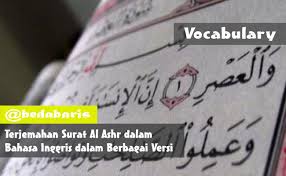 Vocabulary
وَالْعَصْرِ ١ إِنَّ
وَعَمِلُوا
@bedabaris
Terjemahan Surat Al Ashr dalam
Bahasa Inggris dalam Berbagai Versi